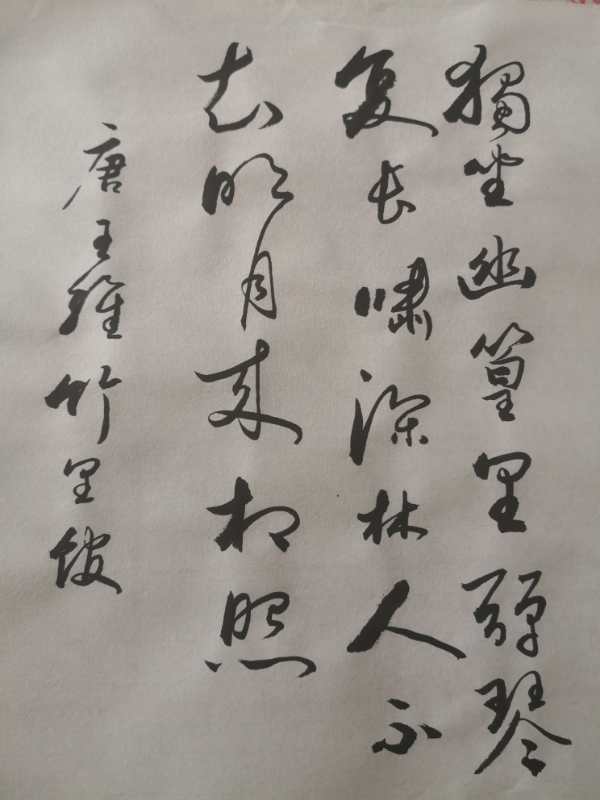 獨坐幽篁里彈琴
复长啸深林人不
知明月来相照
唐王維竹里馆